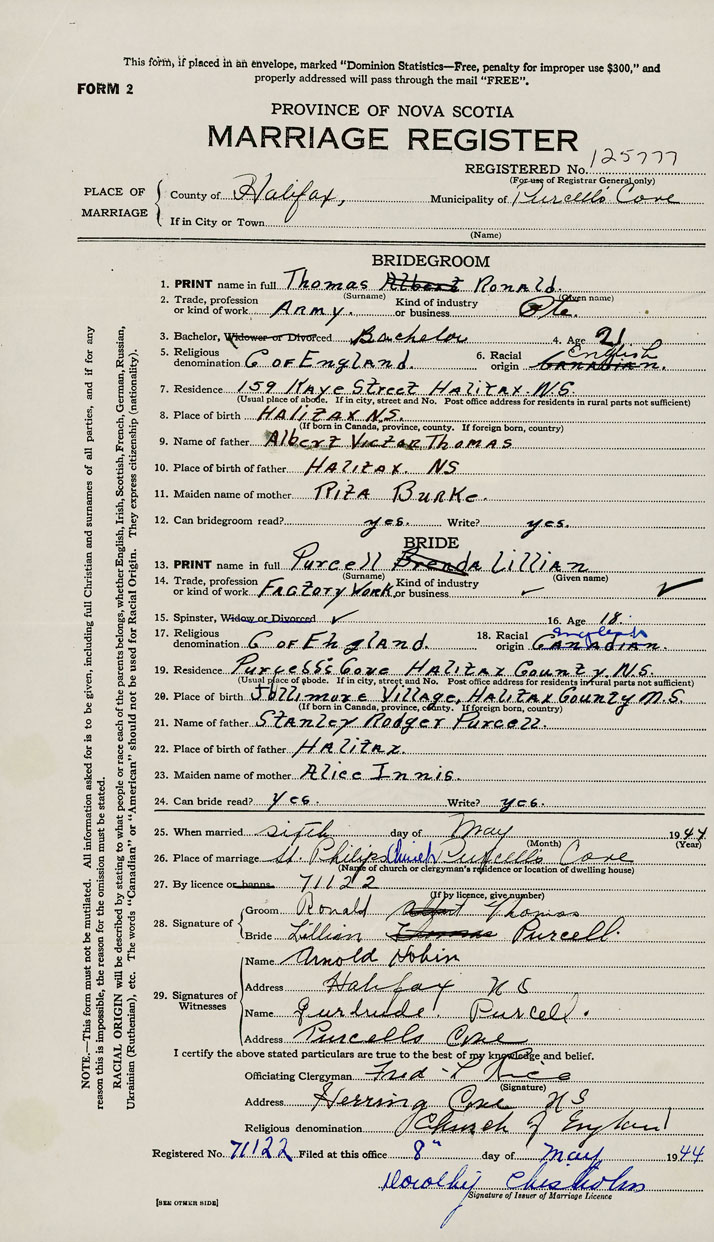 This form, if placed in an envelope, marked "Dominion Statistics—Free, penalty for improper use $300," and
properly addressed will pass through the mail "FREE".
FORM 2
PROVINCE OF NOVA SCOTIA
MARRIAGE REGISTER
REGISTERED No. 125777
(For use of Registrar General only)
PLACE OF MARRIAGE
County of Halifax, Municipality of Purcell's Cove
If in City or Town
(Name)
BRIDEGROOM
1. PRINT name in full Thomas Albert Ronald.
(Surname) (Given name)
2. Trade, profession or kind of work Army. Kind of industry or business Pte.
3. Bachelor, Widower or Divorced Bachelor 4. Age 21
5. Religious denomination C of England. 6. Racial origin Canadian. English
7. Residence 159 Kaye Street Halifax. N.S
(Usual place of abode. If in city, street and No. Post office address for residents in rural parts not sufficient)
8. Place of birth Halifax N.S.
(If born in Canada, province, county. If foreign born, country)
9. Name of father Albert Victor Thomas
10. Place of birth of father Halifax. NS
11. Maiden name of mother Rita Burke.
12. Can bridegroom read? yes. Write? yes.
BRIDE
13. PRINT name in full Purcell Brenda Lillian
(Surname) (Given name)
14. Trade, profession or kind of work Factory Work Kind of industry or business
15. Spinster, Widow or Divorced 16. Age 18.
17. Religious denomination C of England. 18. Racial origin Canadian.
19. Residence Purcell's Cove Halifax County N.S.
(Usual place of abode. If in city, street and No. Post office address for residents in rural parts not sufficient)
20. Place of birth Jollimore Village, Halifax County N.S.
(If born in Canada, province, county. If foreign born, country)
21. Name of father Stanley Rodger Purcell.
22. Place of birth of father Halifax.
23. Maiden name of mother Alice Innis.
24. Can bride read? Yes. Write? yes.
25. When married sixth day of May 1944
(Month) (Year)
26. Place of marriage St. Philips Church Purcell's Cove
(Name of church or clergyman's residence or location of dwelling house)
27. By licence or banns 71122
(If by licence, give number)
28. Signature of
Groom Ronald Albert Thomas
Bride Lillian Purcell.
29. Signatures of Witnesses
Name Arnold
Address Halifax N S
Name Gertrude Purcell.
Address Purcells Cove
I certify the above stated particulars are true to the best of my knowledge and belief.
Officiating Clergyman Fred Rice
(Signature)
Address Herring Cove N S
Religious denomination Church of England
Registered No. 71122 Filed at this office 8" day of May 1944
Dorothy Chisholm
Signature of Issuer of Marriage Licence
[SEE OTHER SIDE]
NOTE.—This form must not be mutilated. All information asked for is to be given, including full Christian and surnames of all parties, and if for any
reason this is impossible, the reason for the omission must be stated.
RACIAL ORIGIN will be described by stating to what people or race each of the parents belongs, whether English, Irish, Scottish, French, German, Russian,
Ukrainian (Ruthenian), etc. The words "Canadian" or "American" should not be used for Racial Origin. They express citizenship (nationality).